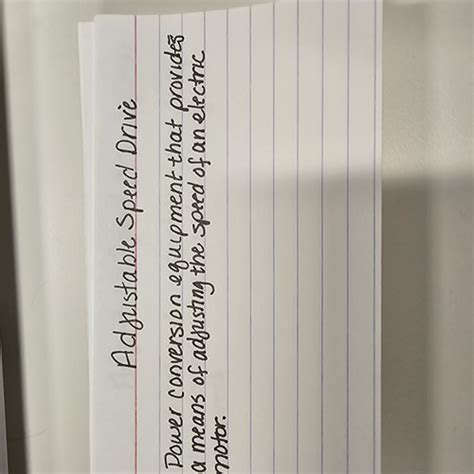 Adjustable Speed Drive
Power conversion equipment that provides
a means of adjusting the speed of an electric
motor.